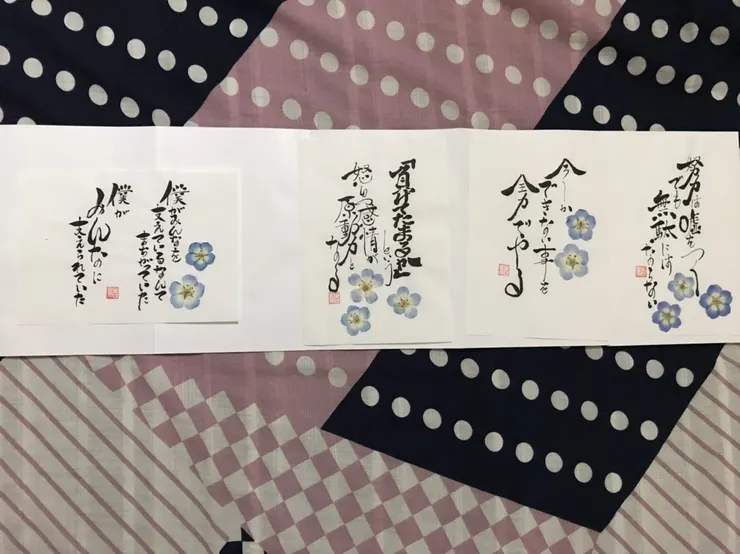 努力は嘘をつく
でも
無駄には
ならない
今しか
できない事を
全力でやる
「負けてたまるか」
という
怒りの感情が
原動力となる
僕がみんなを
支えているなんて
まちがっていた
僕が
みんなに
支えられていた